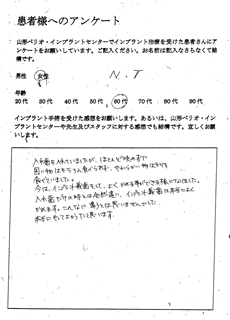 患者様へのアンケート
山形ペリオ・インプラントセンターでインプラント治療を受けた患者さんにア
ンケートをお願いしています。ご記入ください。お名前は記入なさらなくて結
構です。
男性 女性 N.T
年齢
20代 30代 40代 50代 60代 70代 80代 90代
インプラント手術を受けた感想をお願いします。あるいは、山形ペリオ・イン
プラントセンターや先生及びスタッフに対する感想でも結構です。宜しくお願
いします。
入れ歯を入れていましたが、ほとんど噛めずに
固い物はもちろん食べられず、やわらかい物ばかりを
食べていました。
今はインプラント義歯をして、よくかめる事ができる様になりました。
入れ歯だけの時とは全然違い、インプラント義歯は本当によく
かめます。こんなに違うとは思いませんでした
本当にやってよかったと思います。